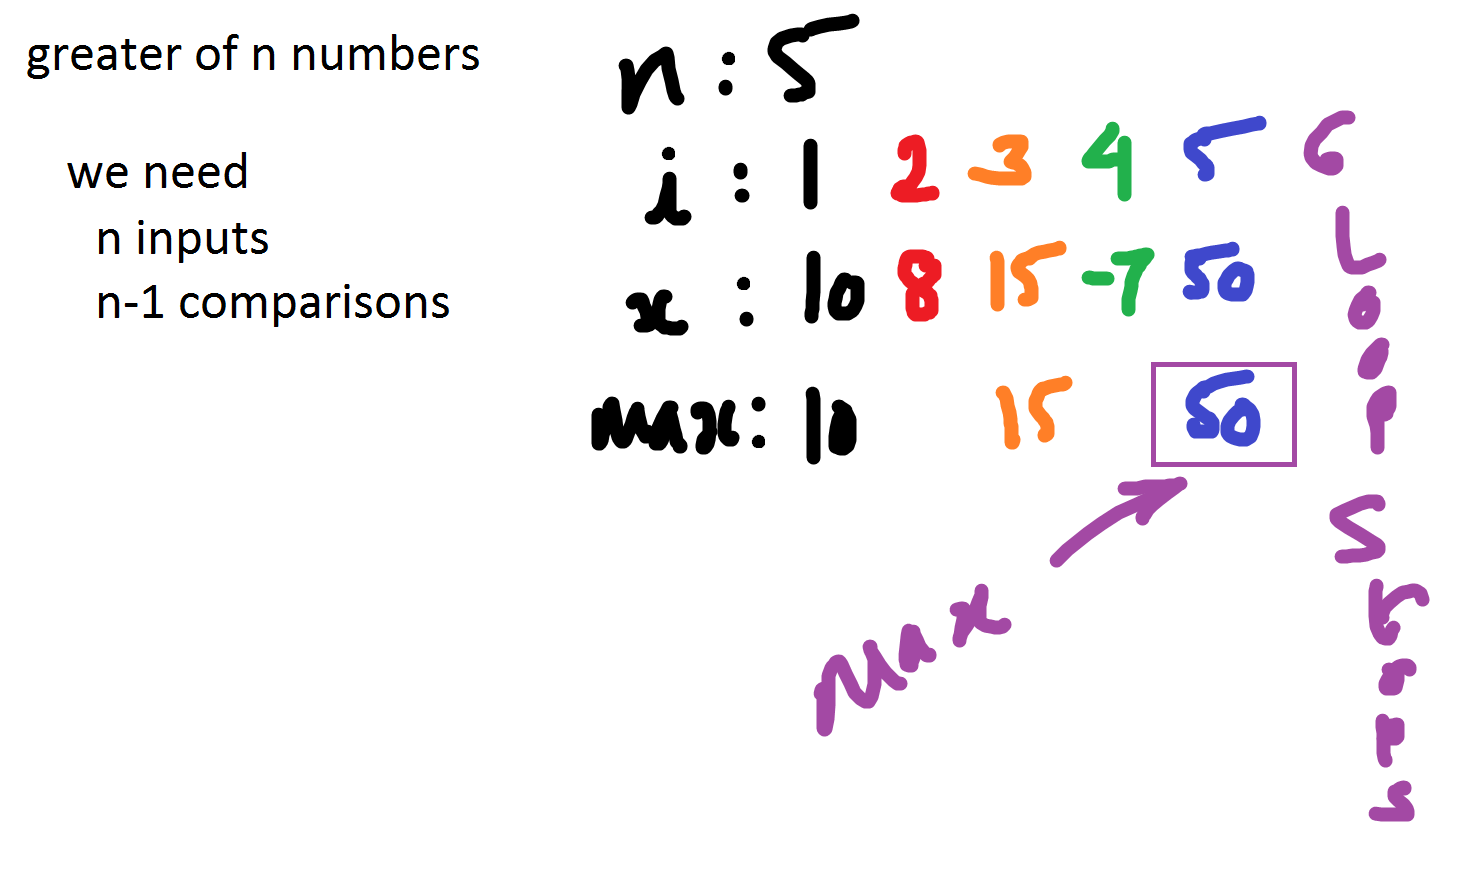 greater of n numbers
we need
n inputs
n-1 comparisons
n : 5
i : 1 2 3 4 5 6
x : 10 8 15 -7 50
max: 10 15 50
max
Loop
Stops